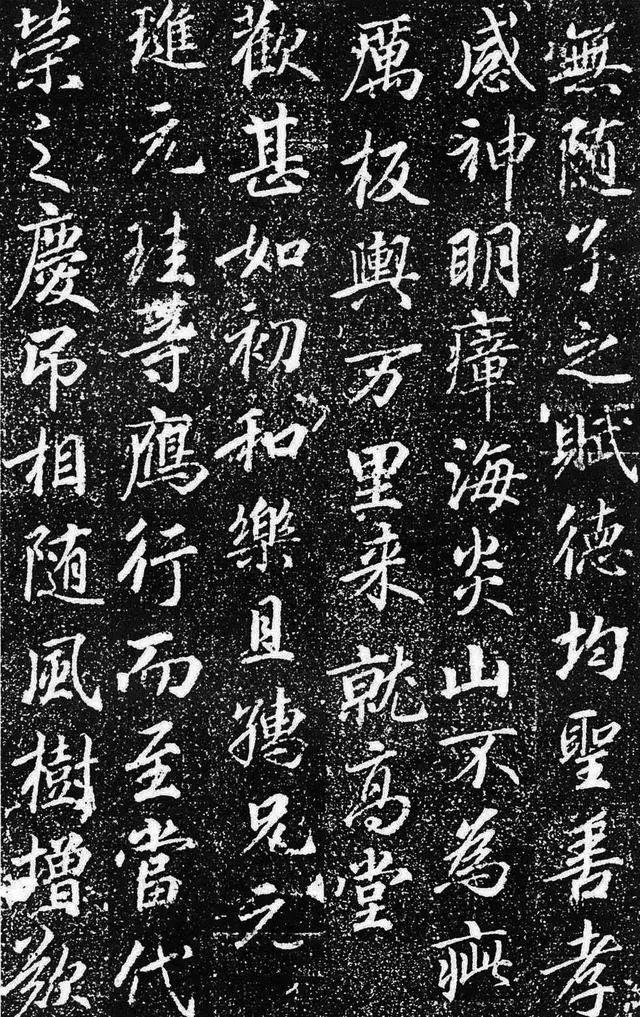 無随子之賦德均聖善孝
感神明瘴海炎山不為疵
厲板輿万里来就高堂
歡甚如初和樂且孺兄元
璡元珪等鴈行而至當代
榮之慶吊相随風樹增歎